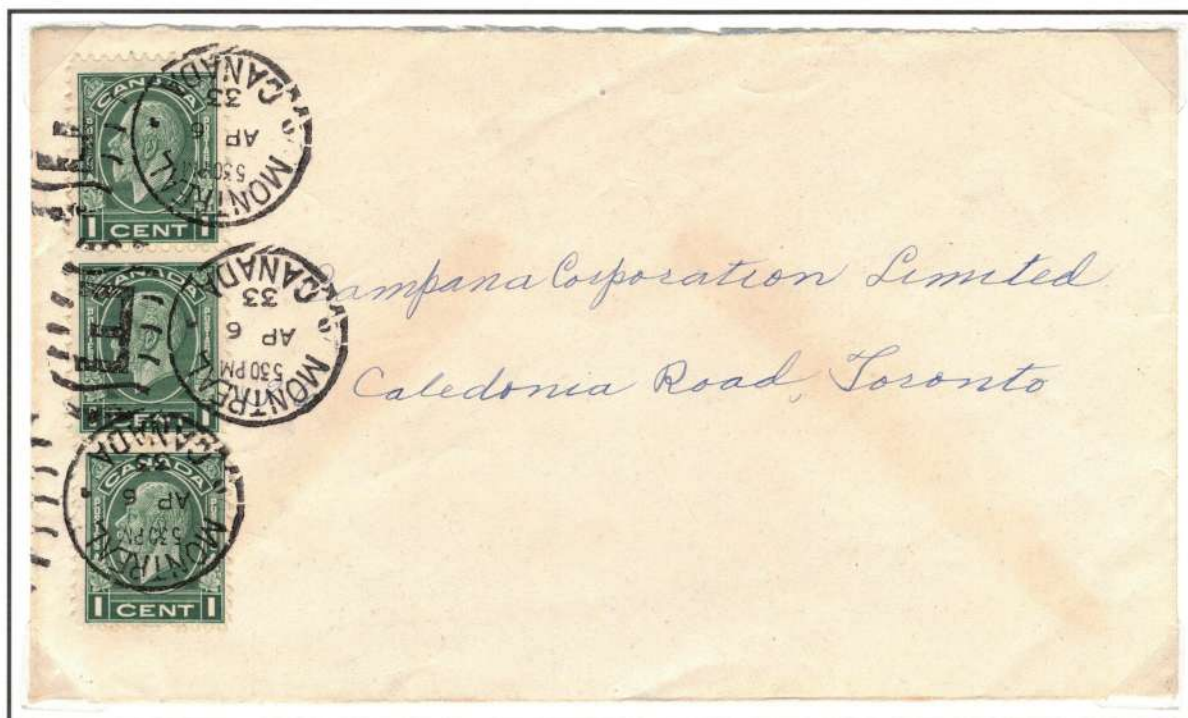 CANADA
1 CENT 1
MONTREAL
530 PM
AP 6
33
CANADA
CANADA
CENT 1
MONTREAL
530 PM
AP 6
33
CANADA
CANADA
1 CENT 1
MONTREAL
530 PM
AP 6
33
CANADA
Campana Corporation Limited
Caledonia Road, Toronto